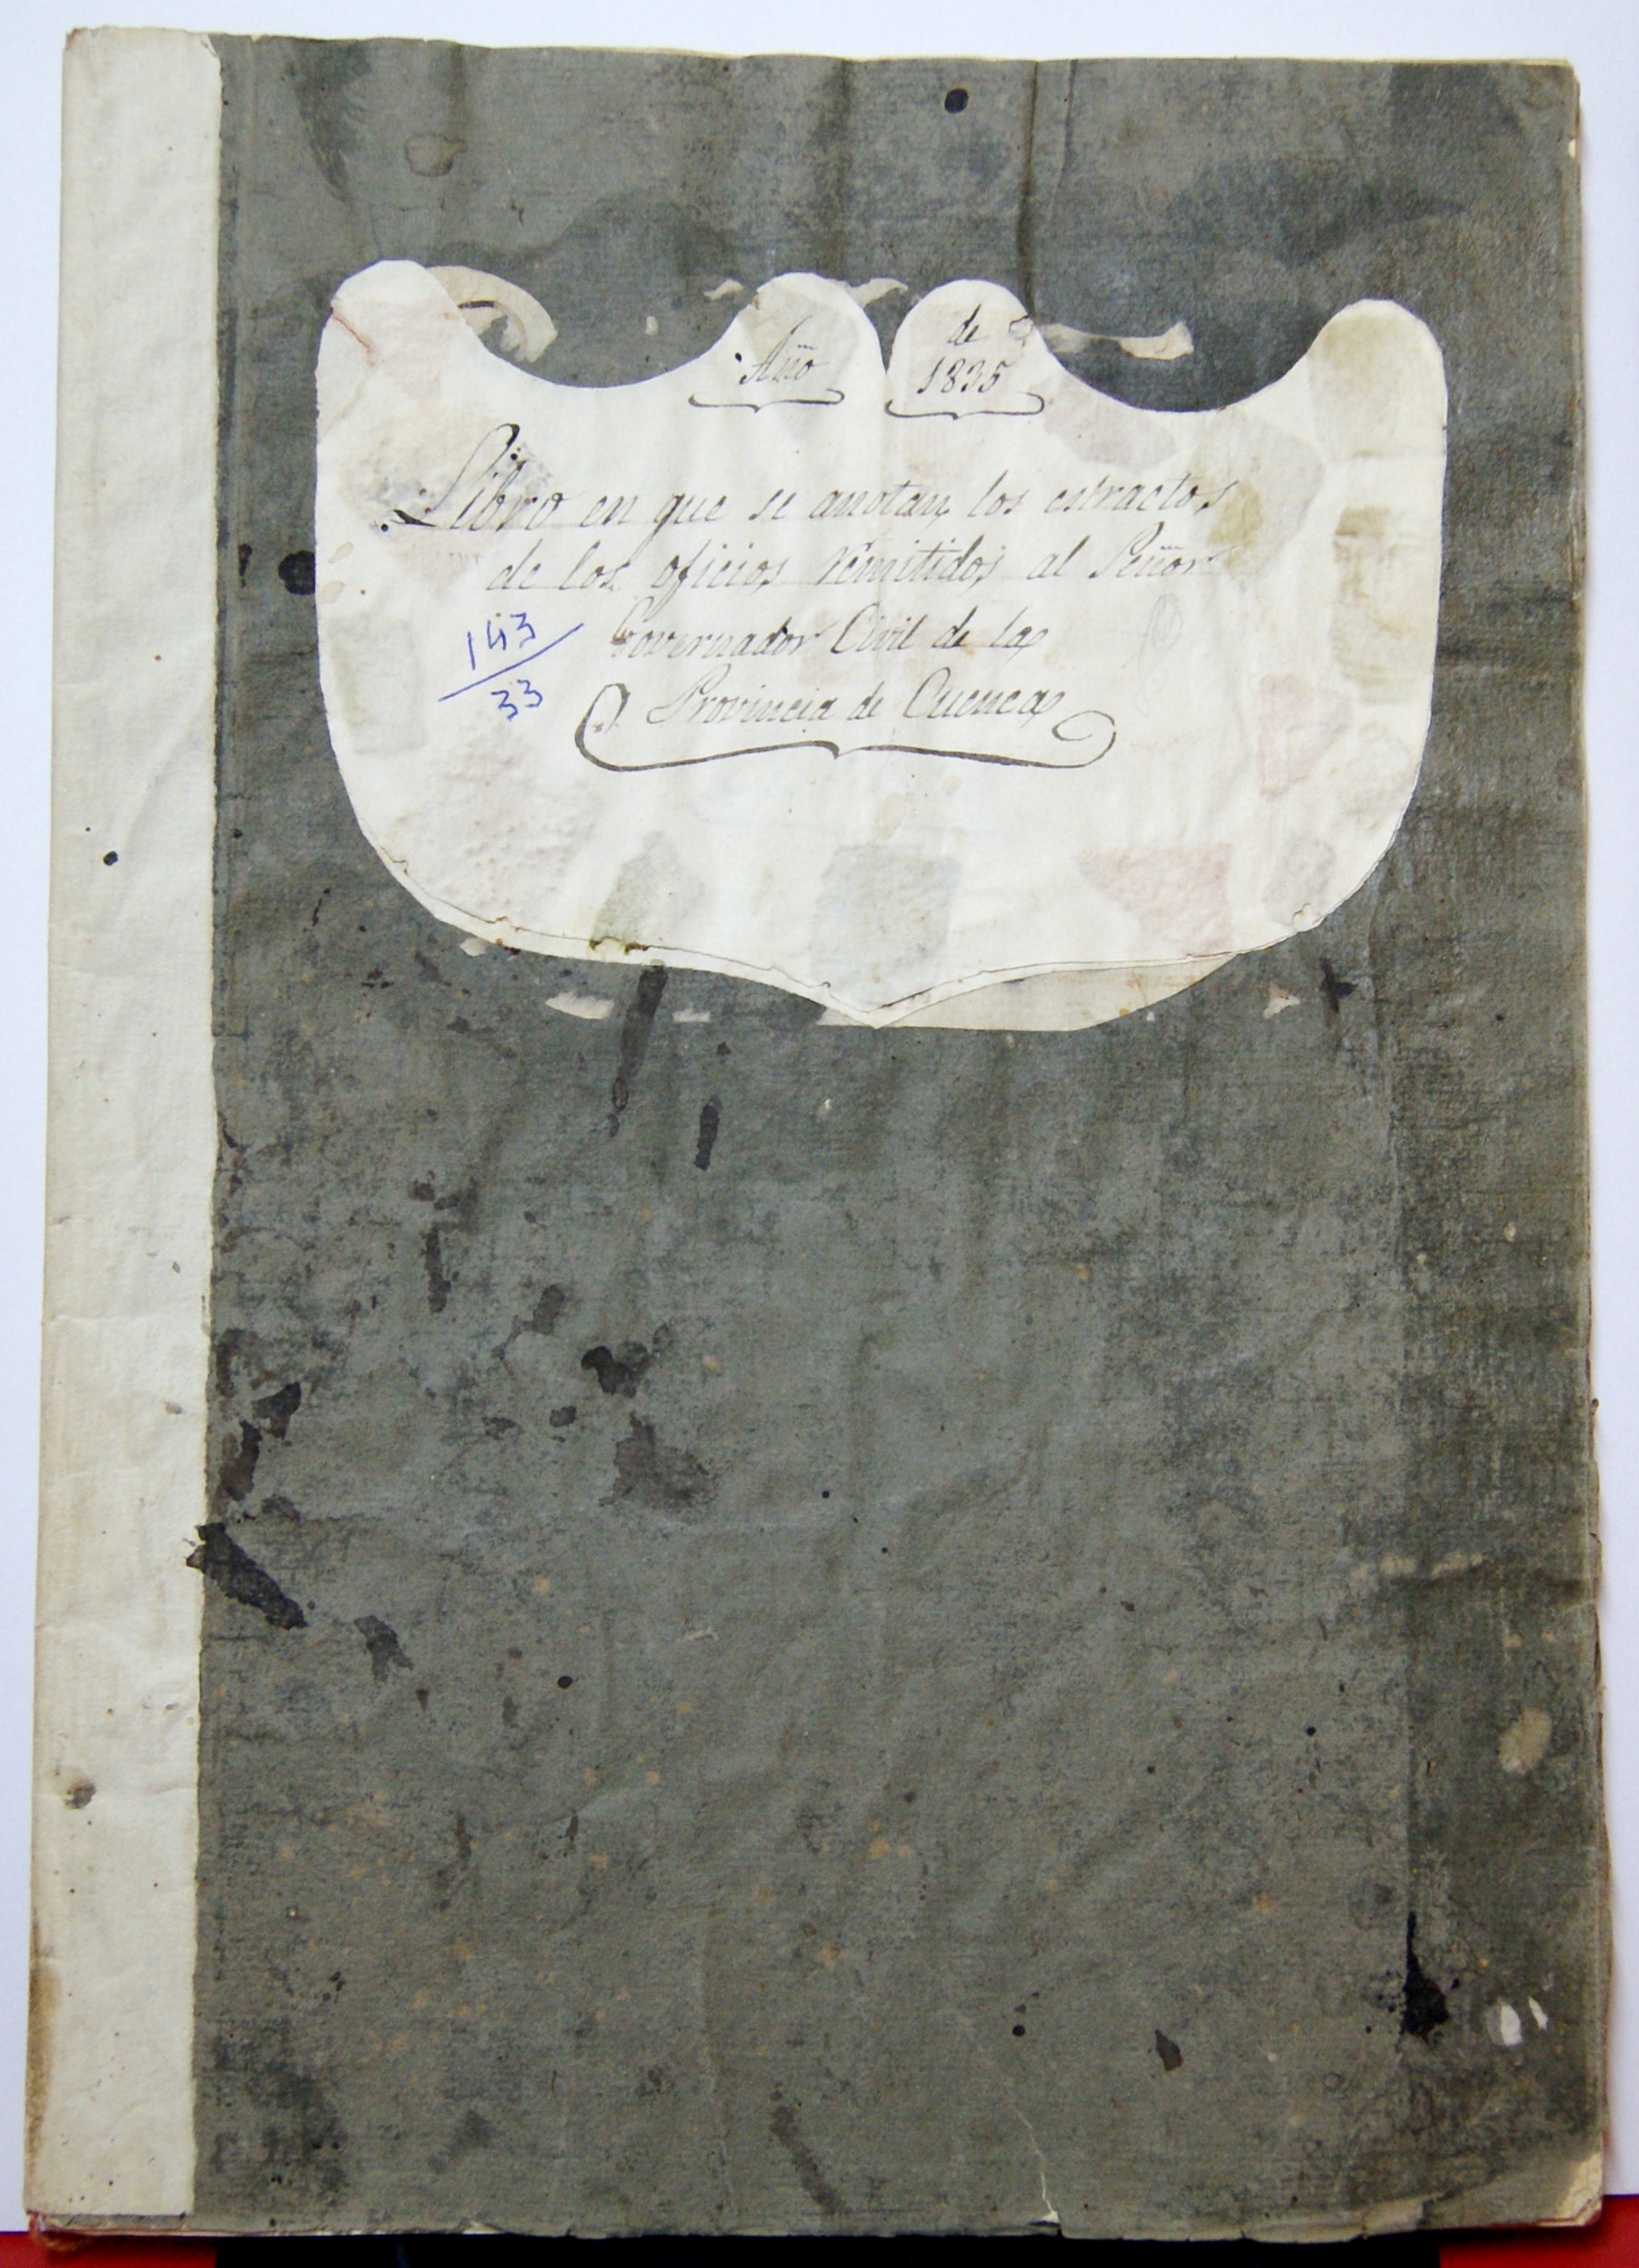 Año de
1835
Libro en que se anotan los estractos
de los oficios remitidos al Señor
Governador Civil de la
Provincia de Cuenca
143
33